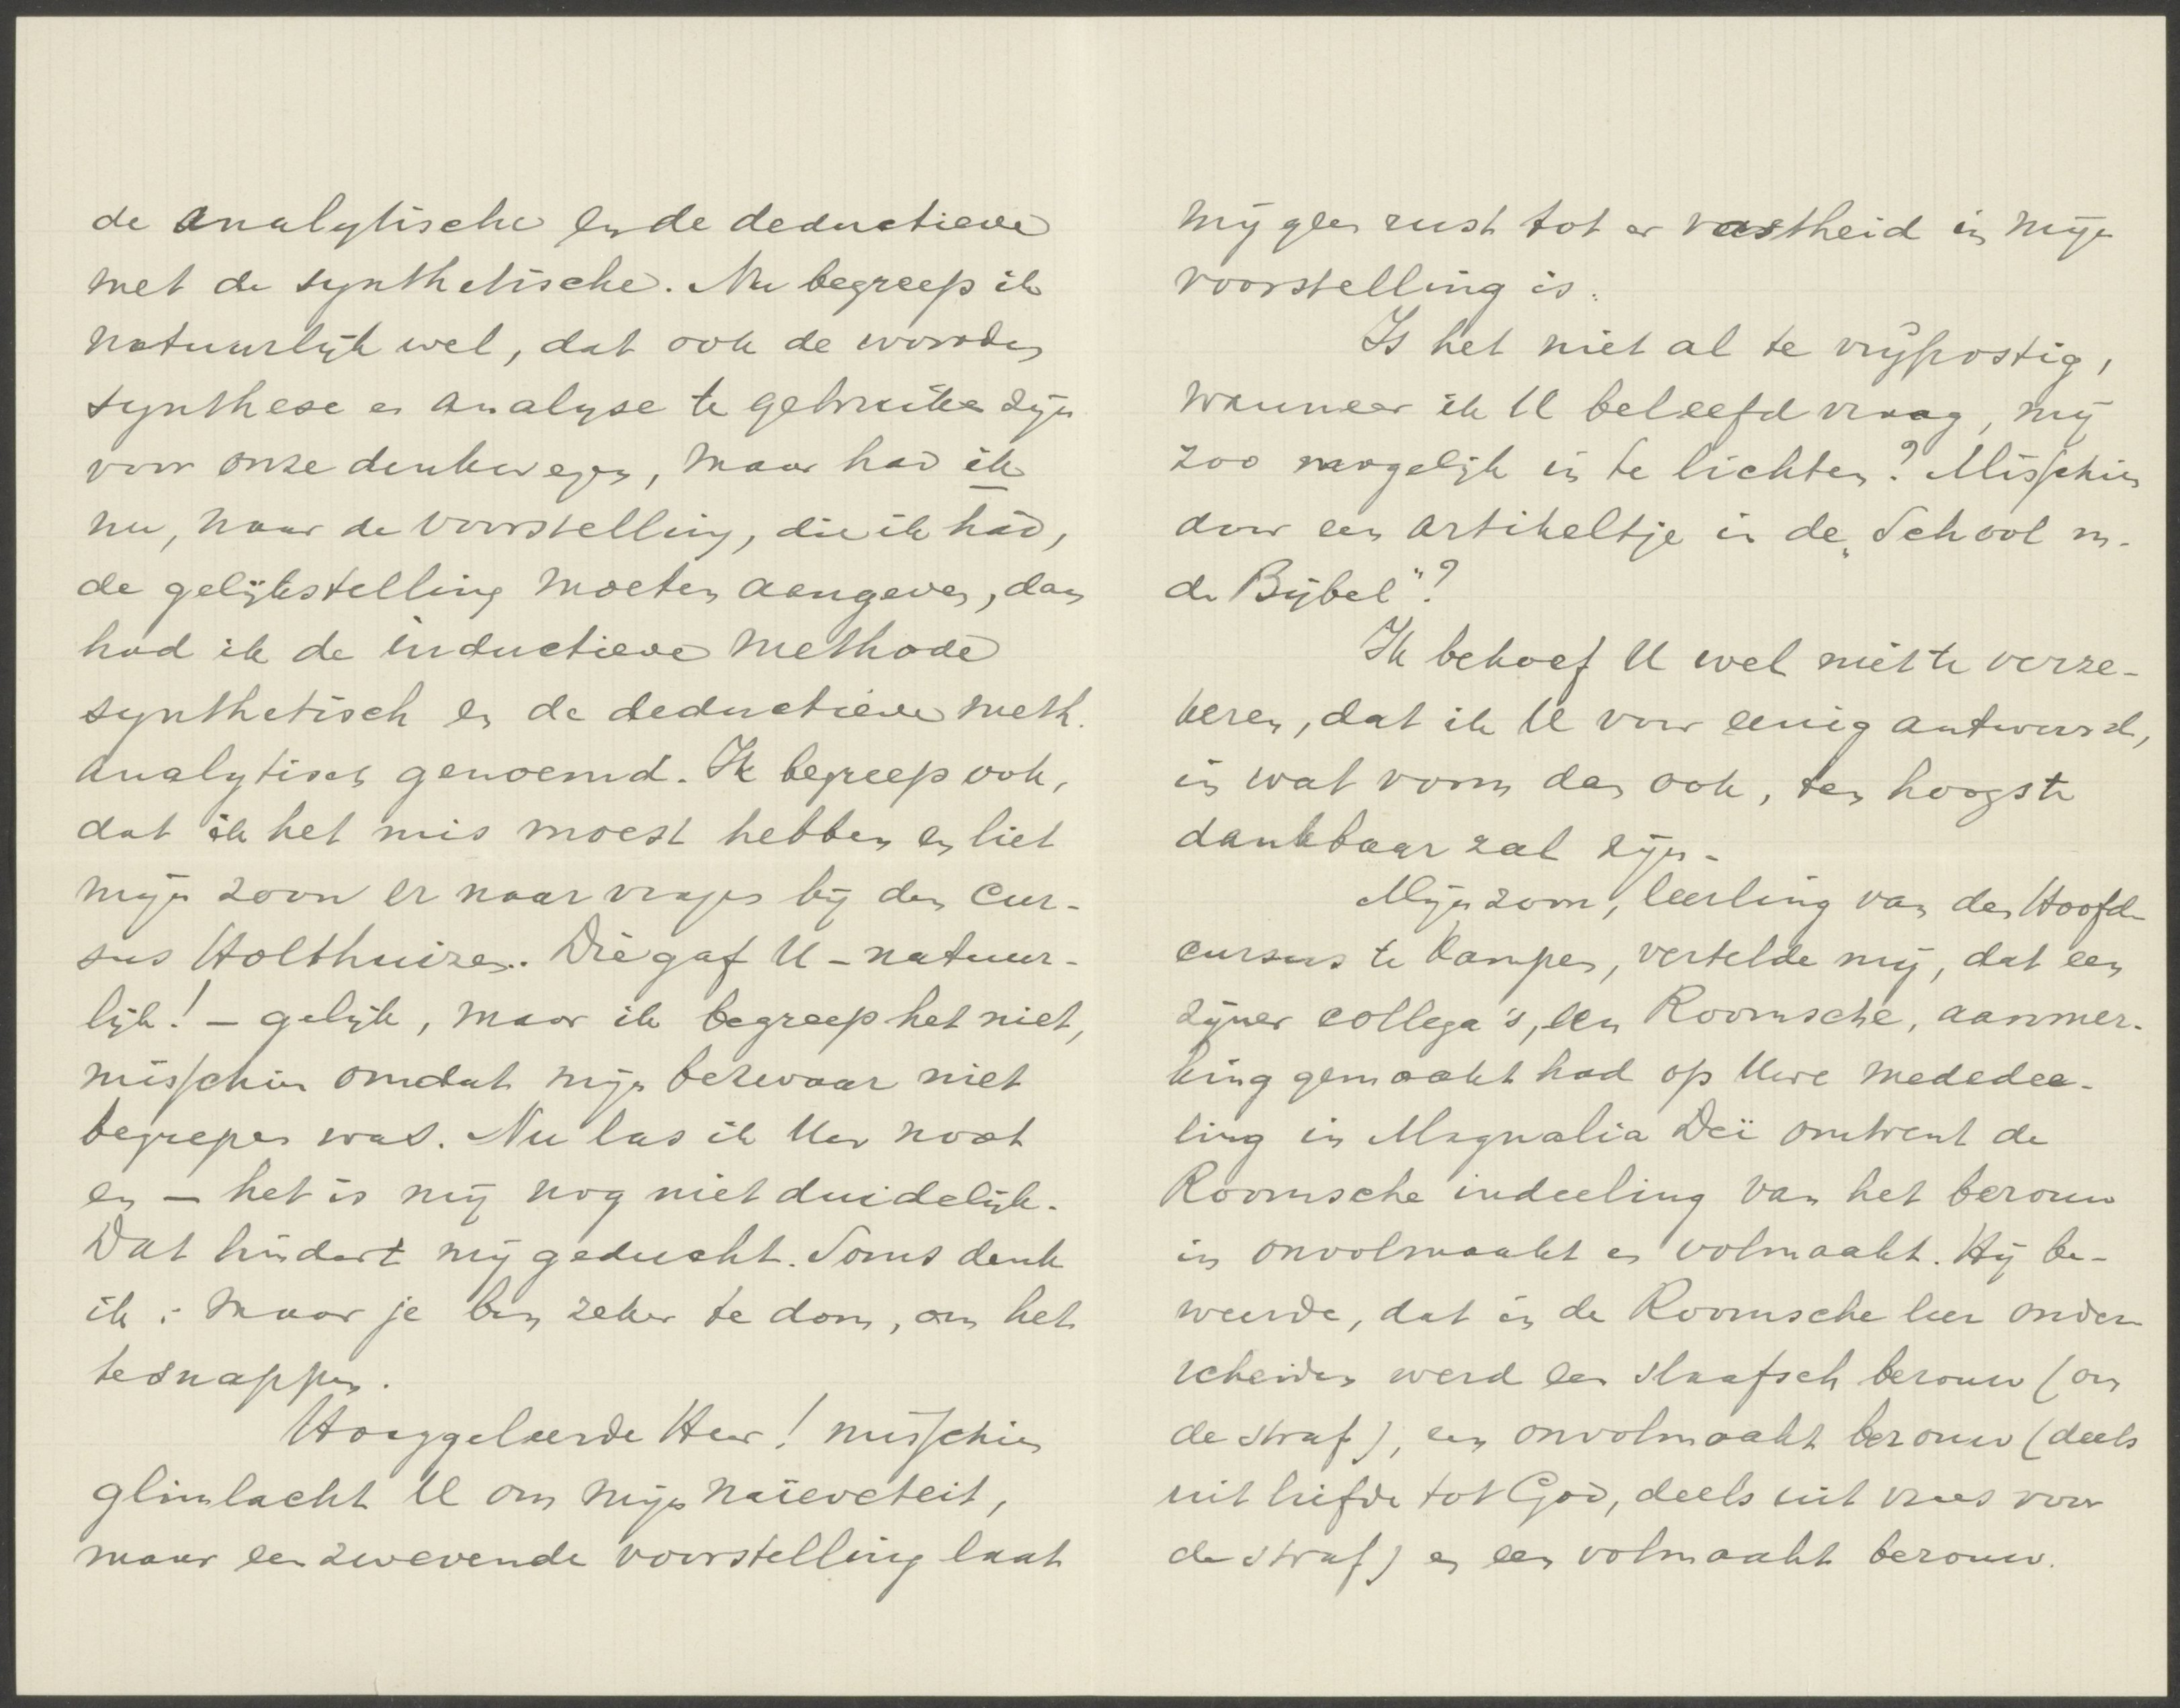 de analytische en de deductieve
met de synthetische. Nu begreep ik
natuurlijk wel, dat ook de woorden
synthese en analyse te gebruiken zijn
voor onze denkwegen, maar had ik
nu, naar de voorstelling, die ik had,
de gelijkstelling moeten aangeven, dan
had ik de inductieve methode
synthetisch en de deductieve meth.
analytisch genoemd. Ik begreep ook,
dat ik het mis moest hebben en liet
mijn zoon er naar vragen bij den cur-
sus Holthuizen. Die gaf U - natuur-
lijk! - gelijk, maar ik begreep het niet,
misschien omdat mijn bezwaar niet
begrepen was. Nu las ik Uw noot
en - het is mij nog niet duidelijk.
Dat hindert mij geducht. Soms denk
ik: maar je ben zeker te dom, om het
te snappen.
Hooggeleerde Heer! misschien
glimlacht U om mijn naïeveteit,
maar een zwevende voorstelling laat
mij geen rust tot er vastheid in mijn
voorstelling is.
Is het niet al te vrijpostig,
wanneer ik U beleefd vraag, mij
zoo mogelijk in te lichten? Misschien
door een artikeltje in de „School m.
de Bijbel"?
Ik behoef U wel niet te verze-
keren, dat ik U voor eenig antwoord,
in wat vorm dan ook, ten hoogste
dankbaar zal zijn.
Mijn zoon, leerling van den Hoofd-
cursus te Kampen, vertelde mij, dat een
zijner collega's, een Roomsche, aanmer-
king gemaakt had op Uwe mededee-
ling in Magnalia Deï omtrent de
Roomsche indeeling van het berouw
in onvolmaakt en volmaakt. Hij be-
weerde, dat in de Roomsche leer onder-
scheiden werd een slaafsch berouw (om
de straf), een onvolmaakt berouw (deels
uit liefde tot God, deels uit vrees voor
de straf) en een volmaakt berouw.